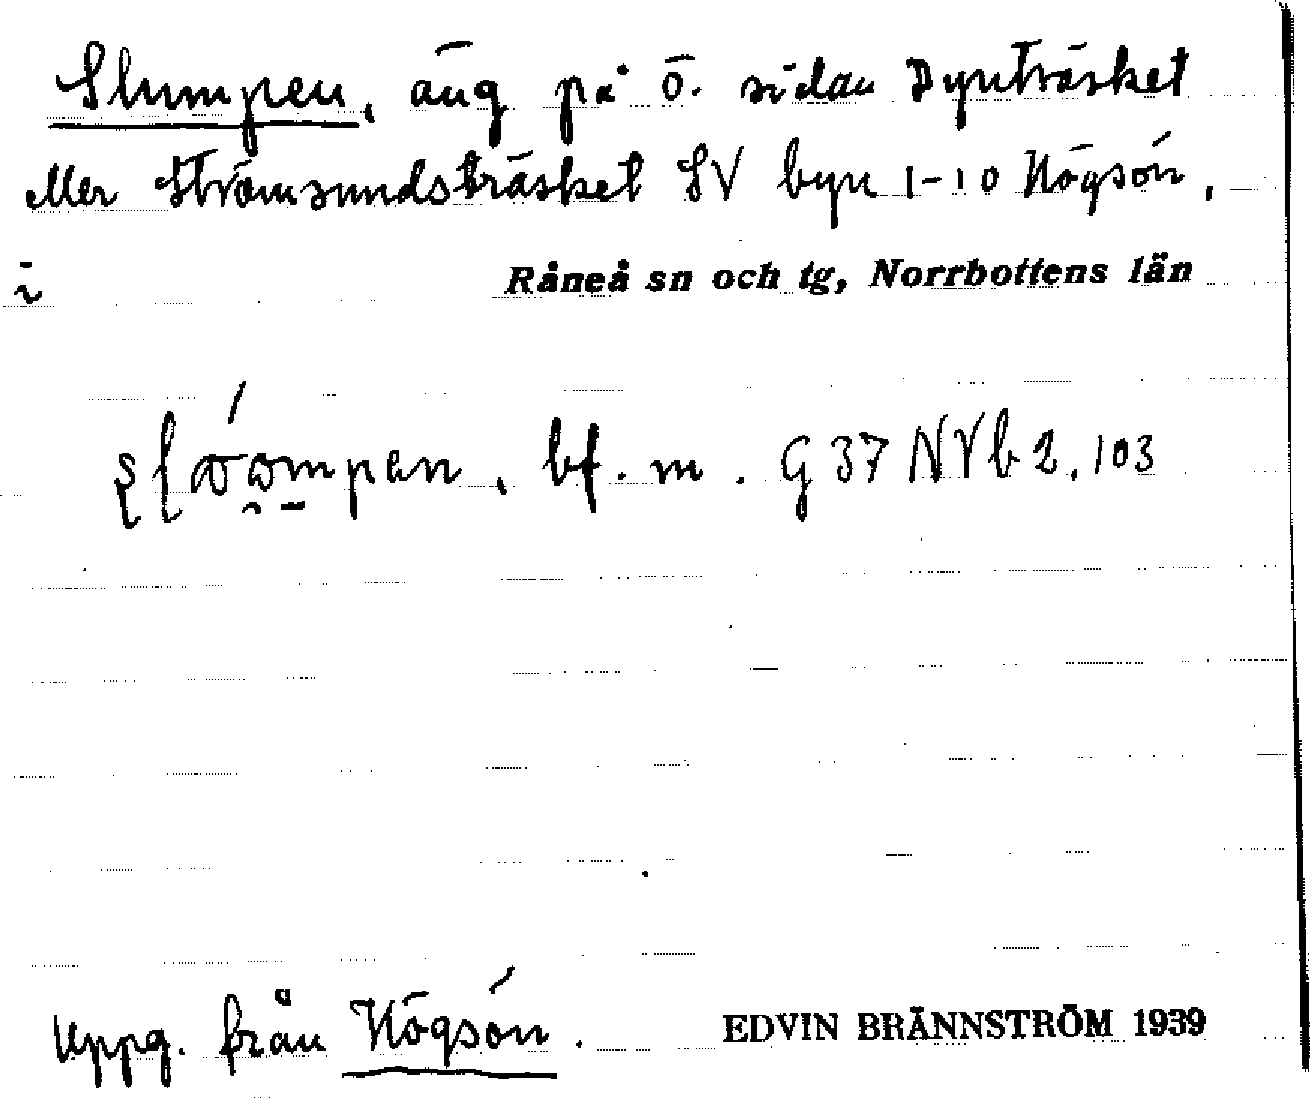 Slumpen, äng på ö. sidan Dynträsket
eller Strömsundsträsket SV byn 1-10 Högsön,
i Råneå sn och tg, Norrbottens län
bf. m. G 37 NVb 2, 103
Uppg. från Högsön. EDVIN BRÄNNSTRÖM 1939